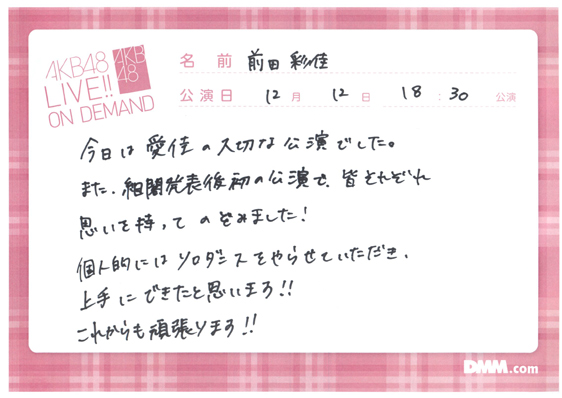 AKB48
LIVE!!
ON DEMAND
AKB
48
名 前 前田 彩佳
公演日 12月 12日 18:30 公演
今日は愛佳の大切な公演でした。
また、組閣発表後初の公演で、皆それぞれ
思いを持ってのぞみました!
個人的にはソロダンスをやらせていただき、
上手にできたと思います!!
これからも頑張ります!!
DMM.com